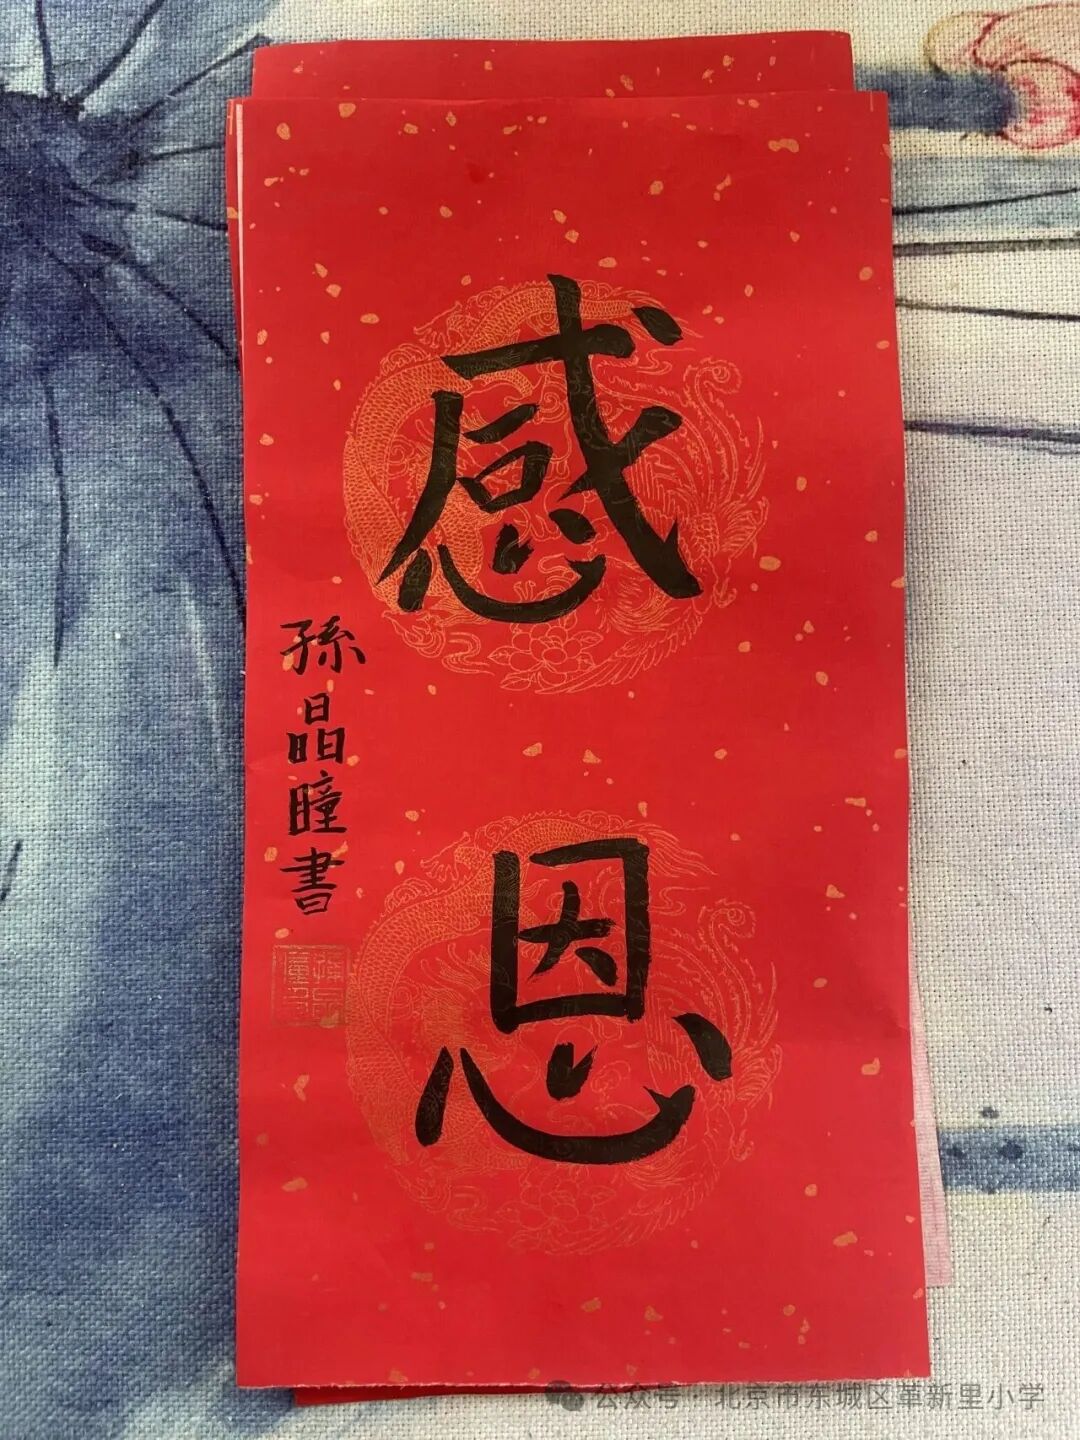 感恩
孫晶瞳書
公众号·北京市东城区革新里小学